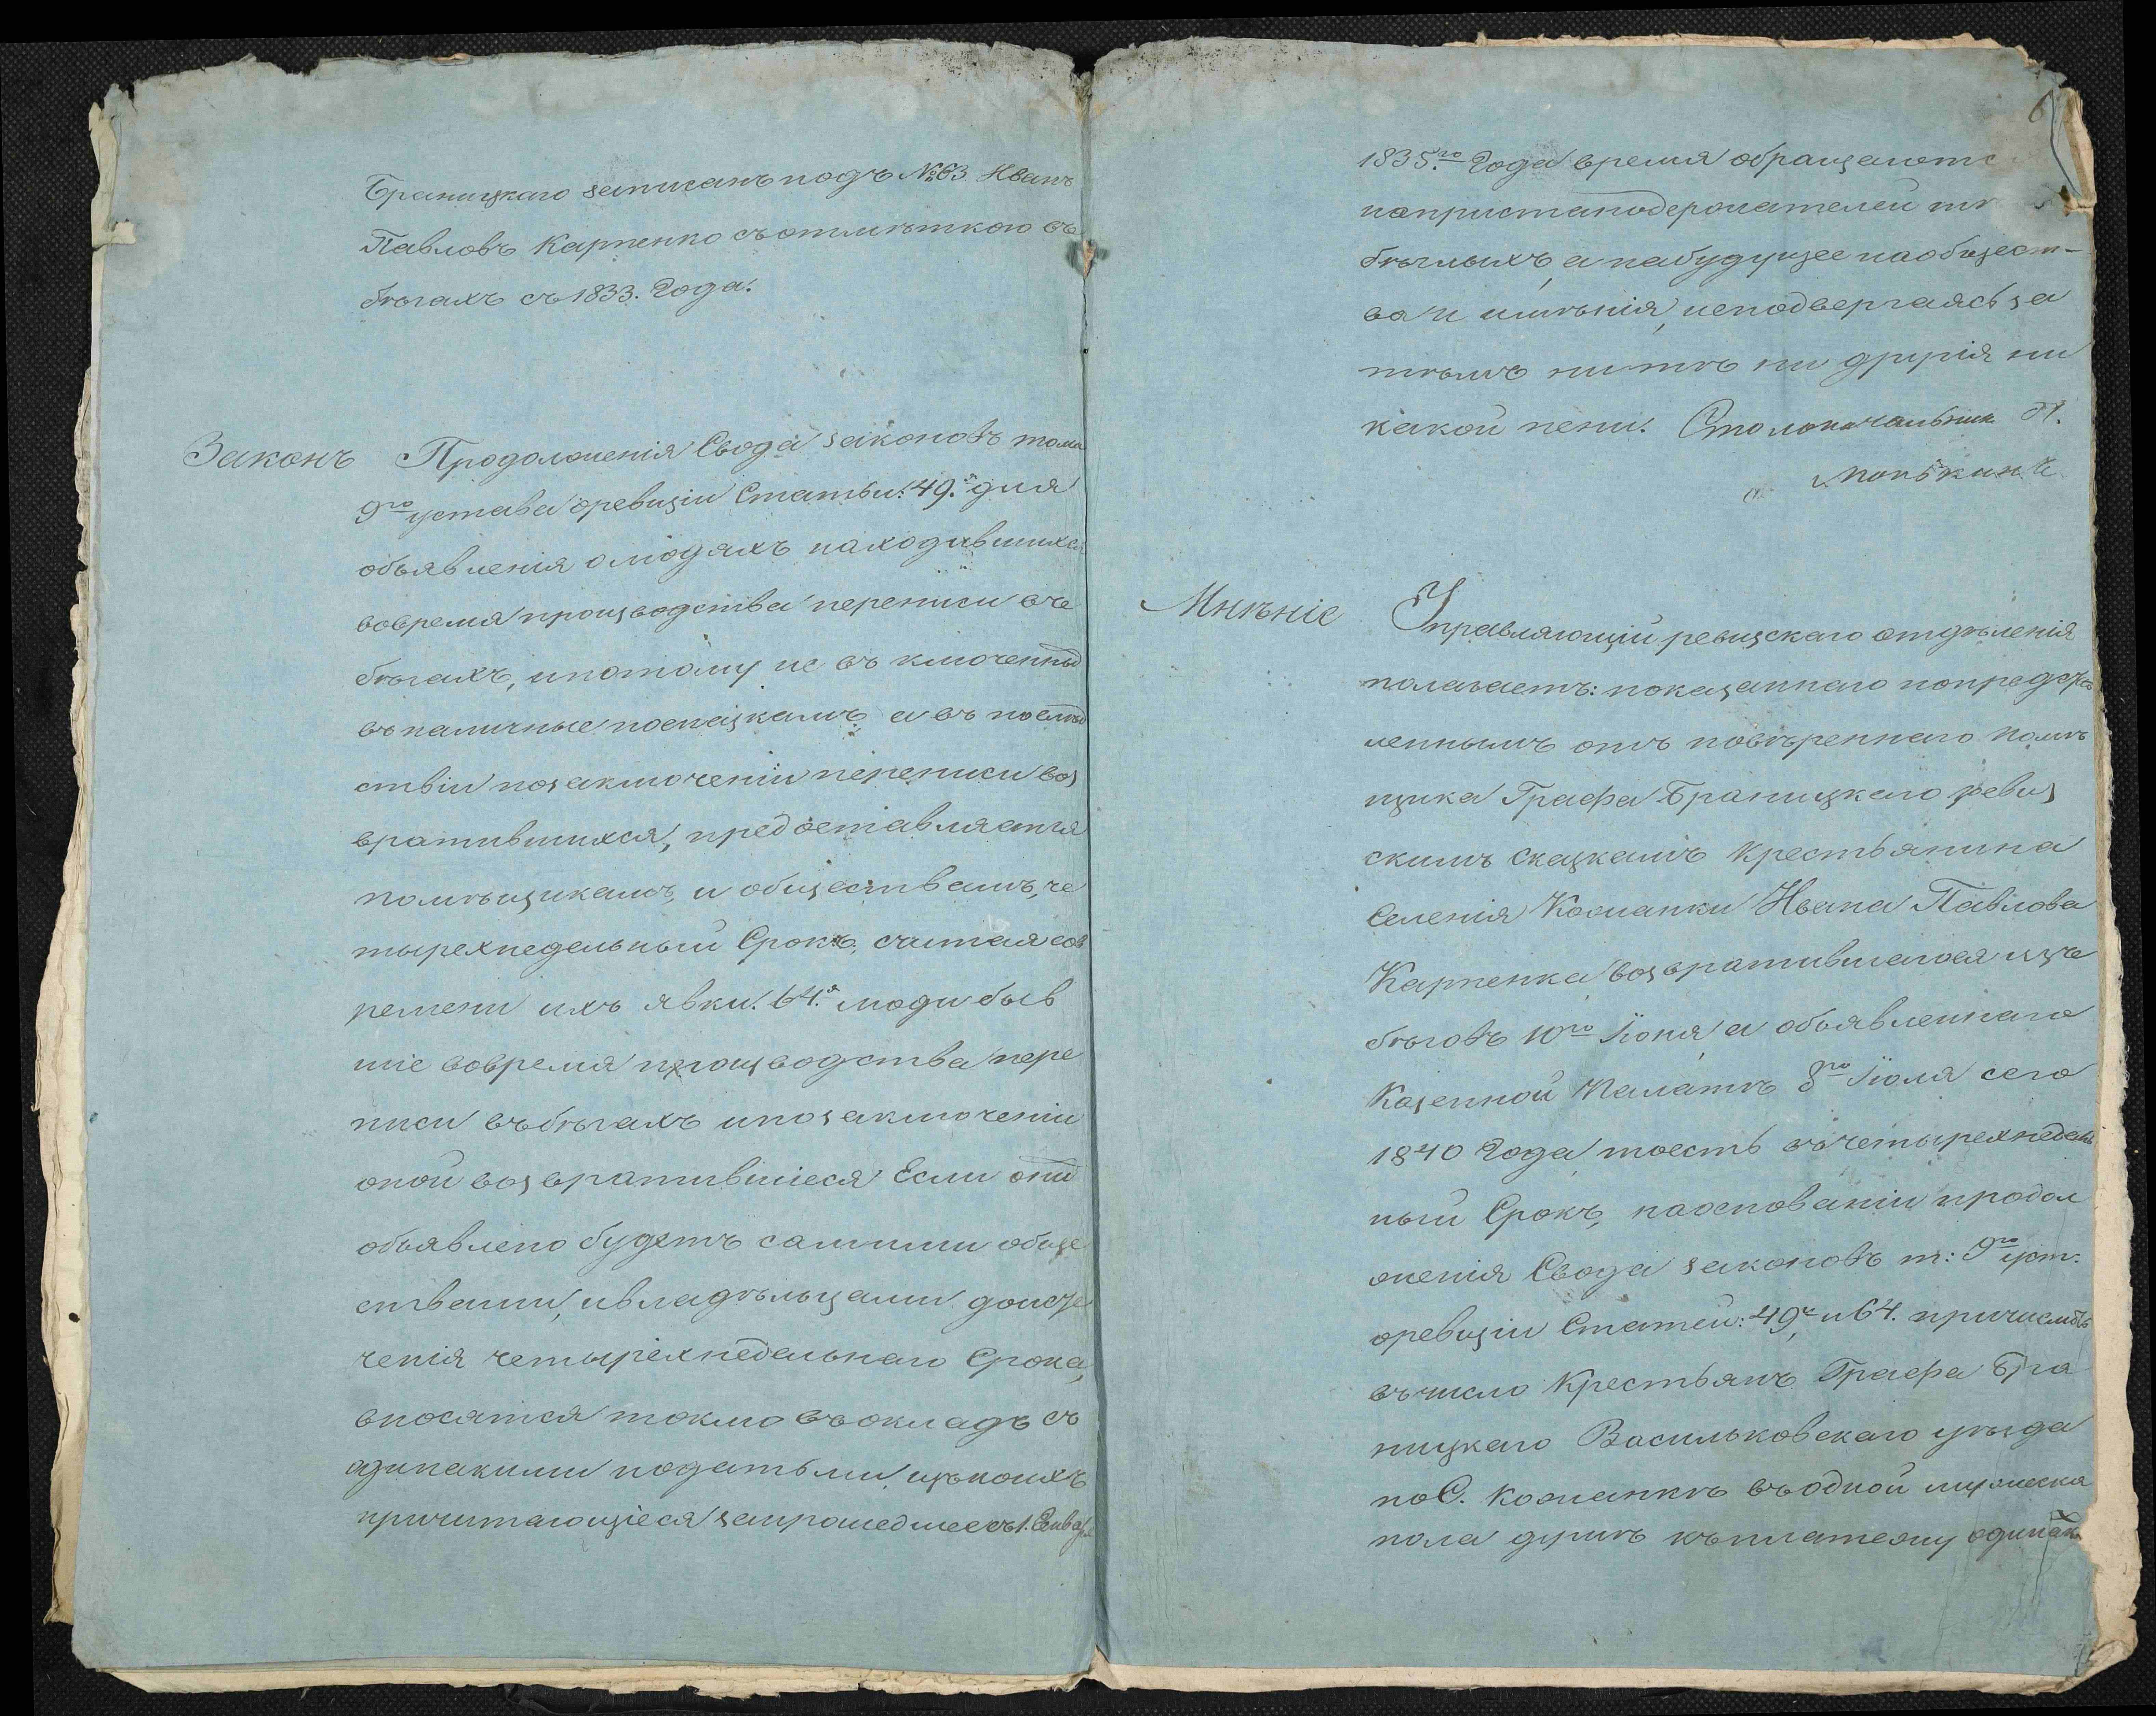 Браницкаго записанъ подъ №63 Иванъ
Павловъ Карпенко съ отмѣткою въ
бѣгахъ съ 1833. Года.
Законъ Продолженія Свода законовъ тома
9го устава о ревизіи Статьи: 49.я для
объявленія о людяхъ находившихся
во время производства переписи въ
бѣгахъ, и потому не въ ключенныхъ
въ наличные по сказкамъ а въ послѣд
ствіи по заключеніи переписи воз
вратившихся, предоставляется
помѣщикамъ, и обществамъ, че
тырехнедельный Срокъ, считая со в
ремени ихъ явки. 64.я люди быв
шіе во время производства пере
писи въ бѣгахъ и по заключеніи
оной возвратившіеся Если они
объявлено будетъ самими обще
ствами, и владѣльцами до исте
ченія четырехнедельнаго Срока,
вносятся токмо въ окладъ съ
одинакими податьми, изъ коихъ
причитающіеся за прошедшее съ 1. Енваря
6
1835.го Года время обращаютс
на пристанодержателей
бѣглыхъ, а на будущее на общест-
ва и имѣнія, не подвергаясь за
тѣмъ ни тѣ ни другія ни
какой пени. Столоначальник
Мнѣніе Управляющій ревизскаго отдѣленія
полагаетъ: показаннаго по представ
леннымъ отъ повѣреннаго помѣ
щика Графа Браницкаго ревиз
скимъ сказкамъ крестьянина
Селенія Кожанки Ивана Павлова
Карпенка возвратившагося изъ
бѣговъ 10го Іюня, а объявленнаго
Казенной Палатѣ 8го Іюля сего
1840 Года тоесть въ четырехнедель
ный Срокъ, на основаніи продол
женія Свода законовъ т: 9го уст.
о ревизіи Статей: 49, и 64. причислить
въ число Крестьянъ Графа Бра
ницкаго Васильковскаго уѣзда
по С. Кожанкѣ въ одной мужеска
пола душѣ къ платежу одинак